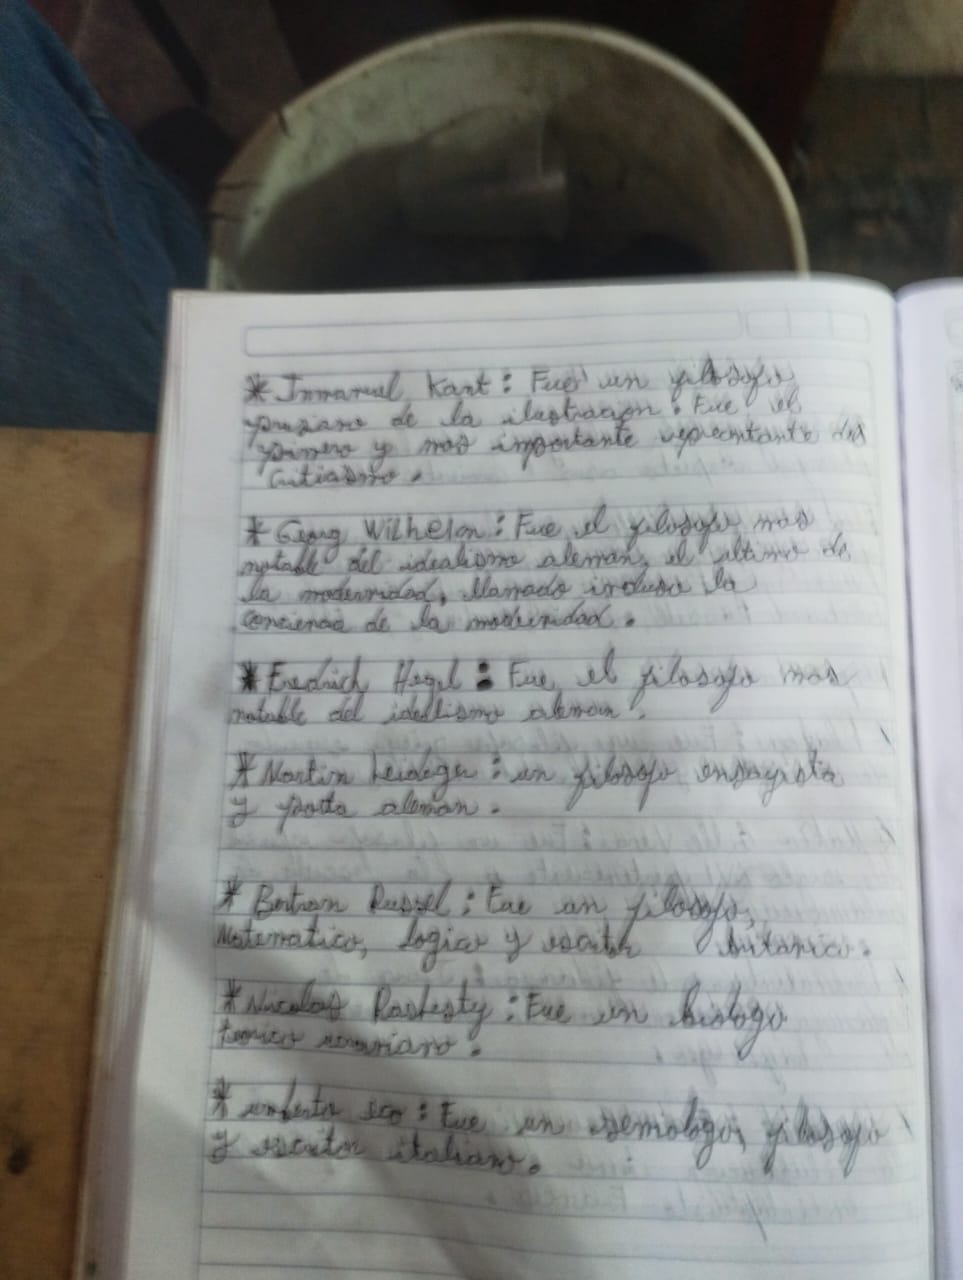 * Inmanuel Kant: Fue un filosofo
prusiano de la ilustracion. Fue el
primero y mas importante repecentante del
* Georg Wilhelm: Fue el filosofo mas
notable del idealismo aleman, el ultimo de
la modernidad, llamado incluso la
conciencia de la modernidad.
* Fredrich Hegel: Fue el filosofo mas
notable del idealismo aleman.
* Martin Heideger: un filosofo ensayista
y poeta aleman.
* Bertran Russel: Fue un filosofo,
Matematico, logico y escritor britanico.
* Nicolas Rashesty: Fue un biologo
teorico
* umberto eco: Fue un semiologo, filosofo
y escritor italiano.